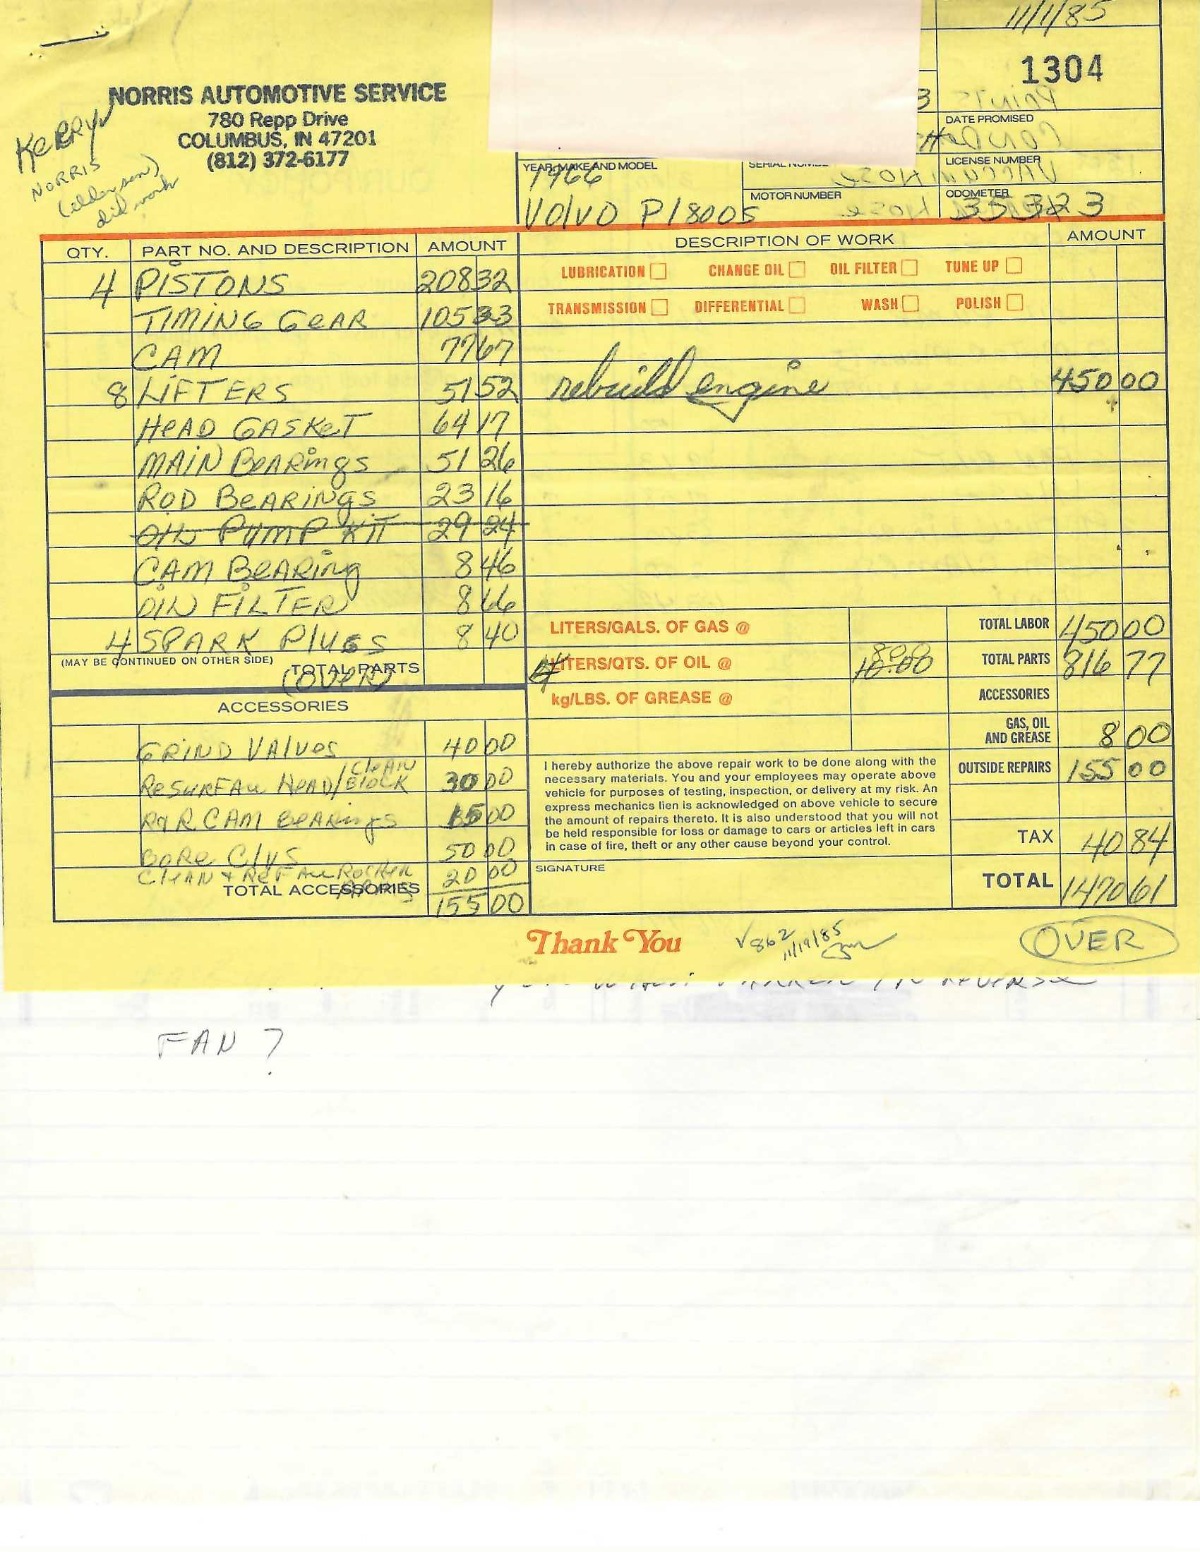 11/1/85
1304
NORRIS AUTOMOTIVE SERVICE
780 Repp Drive
COLUMBUS, IN 47201
(812) 372-6177
KERRY
NORRIS
did work
DATE PROMISED
YEAR, MAKE AND MODEL
1966
VOLVO P1800S
SERIAL NUMBER
MOTOR NUMBER
LICENSE NUMBER
ODOMETER
35323
QTY. PART NO. AND DESCRIPTION AMOUNT
4 PISTONS 208 32
TIMING GEAR 105 33
CAM 77 67
8 LIFTERS 51 52
HEAD GASKET 64 17
MAIN BEARINGS 51 26
ROD BEARINGS 23 16
OIL PUMP KIT 29 24
CAM BEARING 8 46
OIL FILTER 8 66
4 SPARK PLUGS 8 40
(MAY BE CONTINUED ON OTHER SIDE) TOTAL PARTS
(OVER)
ACCESSORIES
GRIND VALVES 40 00
RESURFACE HEAD/CLEAN BLOCK 30 00
R&R CAM BEARINGS 15 00
BORE CLYS 50 00
CLEAN & REFACE ROCKER 20 00
TOTAL ACCESSORIES 155 00
DESCRIPTION OF WORK AMOUNT
LUBRICATION CHANGE OIL OIL FILTER TUNE UP
TRANSMISSION DIFFERENTIAL WASH POLISH
rebuild engine 450 00
LITERS/GALS. OF GAS @
LITERS/QTS. OF OIL @ 8.00 10.00
kg/LBS. OF GREASE @
TOTAL LABOR 450 00
TOTAL PARTS 816 77
ACCESSORIES
GAS, OIL AND GREASE 8 00
OUTSIDE REPAIRS 155 00
TAX 40 84
TOTAL 1470 61
I hereby authorize the above repair work to be done along with the
necessary materials. You and your employees may operate above
vehicle for purposes of testing, inspection, or delivery at my risk. An
express mechanics lien is acknowledged on above vehicle to secure
the amount of repairs thereto. It is also understood that you will not
be held responsible for loss or damage to cars or articles left in cars
in case of fire, theft or any other cause beyond your control.
SIGNATURE
Thank You
√862
11/19/85
OVER
FAN?